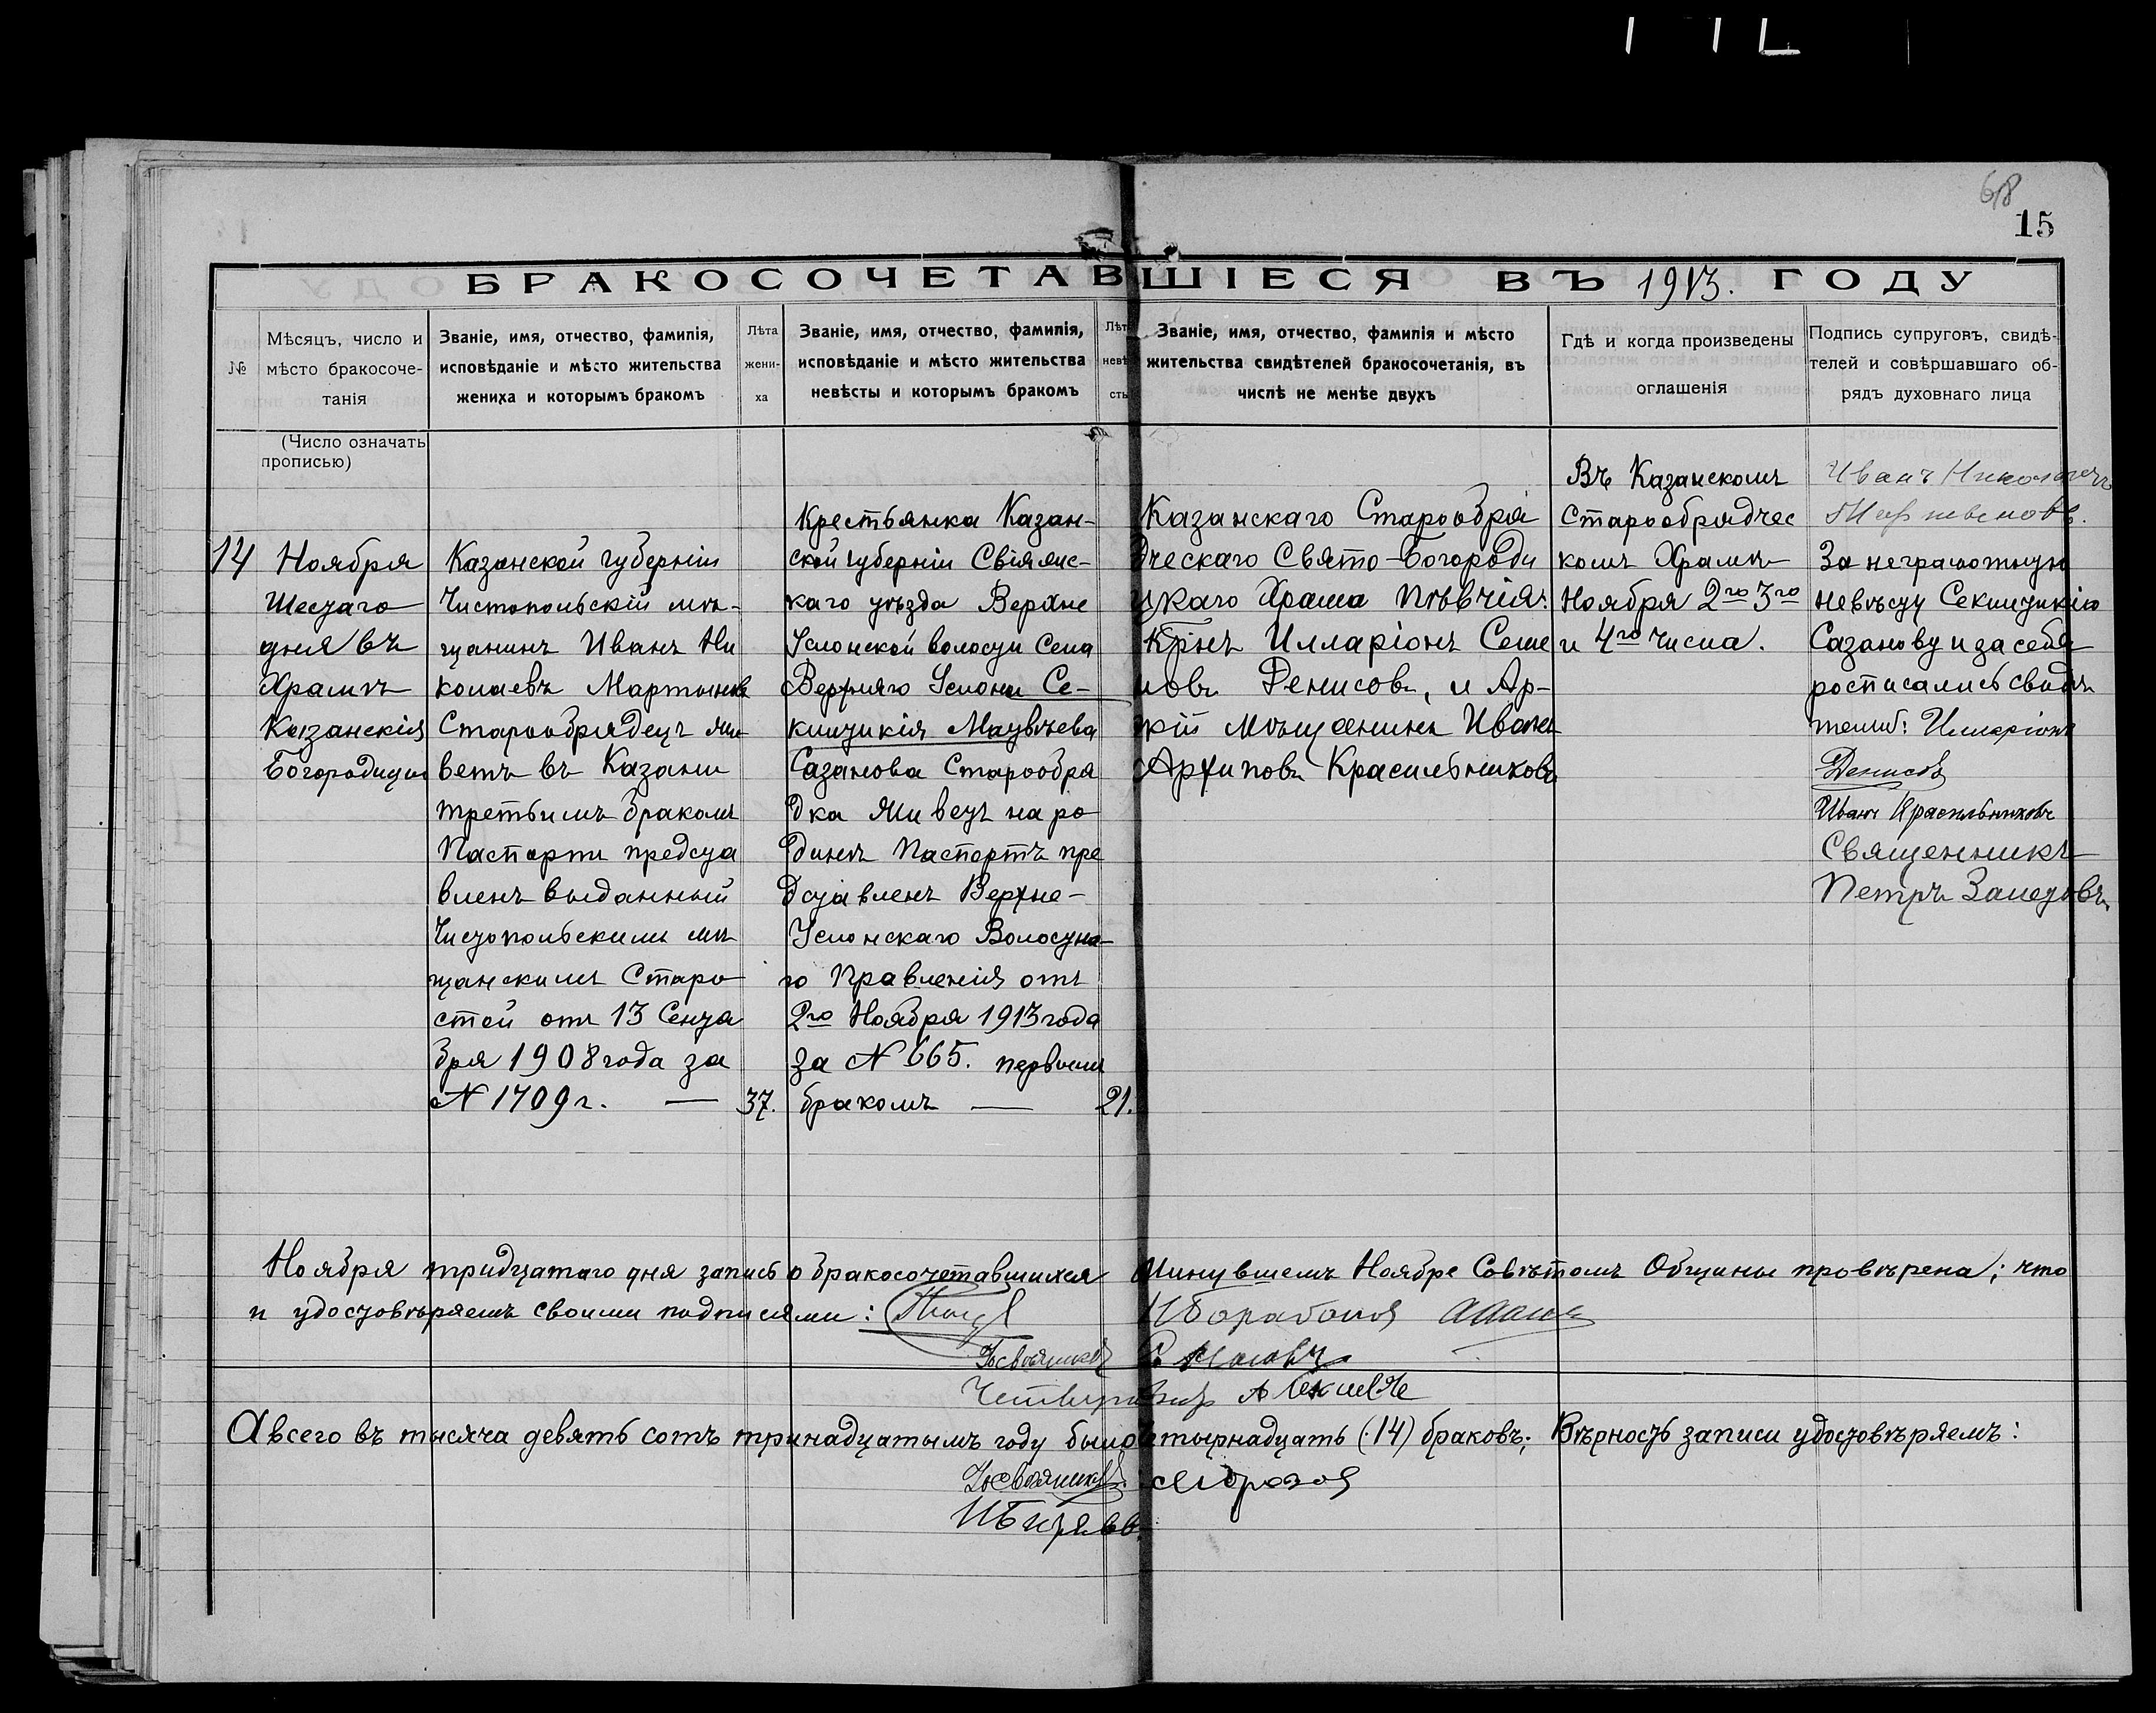 68
15
БРАКОСОЧЕТАВШІЕСЯ ВЪ 1913. ГОДУ
№
Мѣсяцъ, число и
мѣсто бракосоче-
танія
(Число означать
прописью)
Званіе, имя, отчество, фамилія,
исповѣданіе и мѣсто жительства
жениха и которымъ бракомъ
Лѣта
жени-
ха
Званіе, имя, отчество, фамилія,
исповѣданіе и мѣсто жительства
невѣсты и которымъ бракомъ
Лѣт
невѣ
сты
Званіе, имя, отчество, фамилія и мѣсто
жительства свидѣтелей бракосочетанія, въ
числѣ не менѣе двухъ
Гдѣ и когда произведены
оглашенія
Подпись супруговъ, свидѣ-
телей и совѣршавшаго об-
рядъ духовнаго лица
14
Ноября
Шестаго
дня въ
Храмѣ
Казанскія
Богородицы
Казанской губерніи
Чистопольскій мѣ-
щанинъ Иванъ Ни
колаевъ Мартыновъ
Старообрядецъ жи
ветъ въ Казани
третьимъ бракомъ
Паспортъ предста
вленъ выданный
Чистопольскимъ мѣ
щанскимъ Старо
стой отъ 13 Сентя
бря 1908 года за
№ 1709 г. —
37.
Крестьянка Казан-
ской губерніи Свіяжс-
каго уѣзда Верхне
Услонской волости Села
Верхняго Услона Се-
клитикія Матвѣева
Сазанова Старообря
дка Живетъ на ро
динѣ Паспортъ пре
дставленъ Верхне-
Услонскаго Волостна-
го Правленія отъ
2го Ноября 1913 года
за № 665. первымъ
бракомъ —
21.
Казанскаго Старообря
дческаго Свято-Богороди
цкаго Храма Пѣвчія:
Крнъ Илларіонъ Семе
новъ Денисовъ, и Ар-
скій Мѣщанинъ Иванъ
Архиповъ Красильниковъ
Въ Казанскомъ
Старообрядчес
комъ Храмѣ
Ноября 2го 3го
и 4го числа.
Иванъ Николаечъ
Мартывновъ.
За неграмотную
невѣсту Секлитикію
Сазанову и за себя
росписались свидѣ
тели: Илларіонъ
Денисовъ
Иванъ Красильниковъ
Священникъ
Петръ Залетовъ
Ноября тридцатаго дня запись о бракосочетавшихся Минувшемъ Ноябре Совѣтомъ Общины провѣрена; что
и удостовѣряемъ своими подписями:
А всего въ тысяча девять сотъ тринадцатымъ году было четырнадцать (14) браковъ; Вѣрность записи удостовѣряемъ: